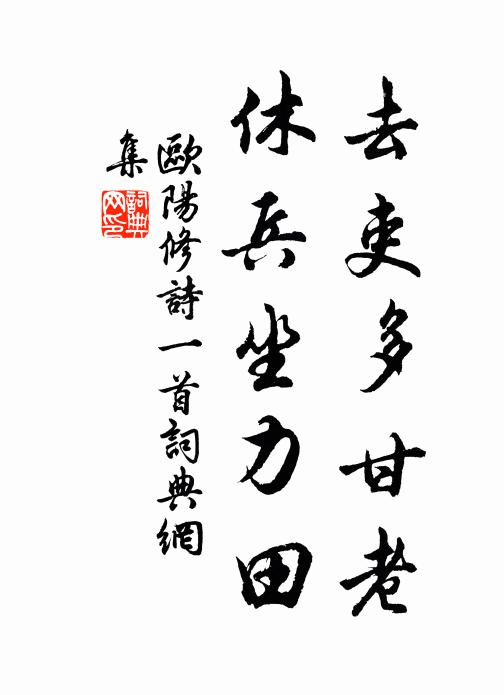 去吏多甘老
休兵坐力田
歐陽修詩一首詞典網
集
詞典
网印